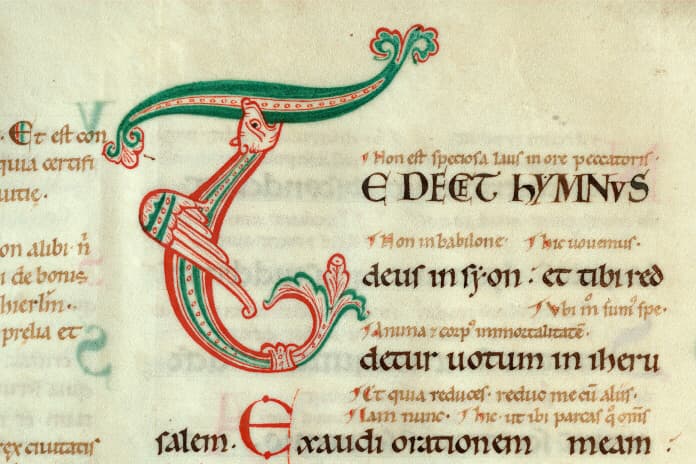 Et est con
quia certifi
uitię.
on alibi. n̄
i de bonis
hierlm̄.
prelia et
rex ciuitatis
Non est speciosa laus in ore peccatoris.
TE DECET HYMNVS
Non in babilone. hic uouemus.
deus in syon : et tibi red
Vbi m̄ sum⁹ spe.
Anima ⁊ corp⁹ immortalitatē.
detur uotum in iheru
Et quia reduces. reduc me cū aliis.
Iam nunc. hic ut ibi parcas
salem. Exaudi orationem meam.